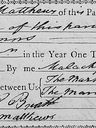 Matthews of the Pa
of this pari
in the Year One T
By me Malach
The Mar
between Us
The Mar
matthews